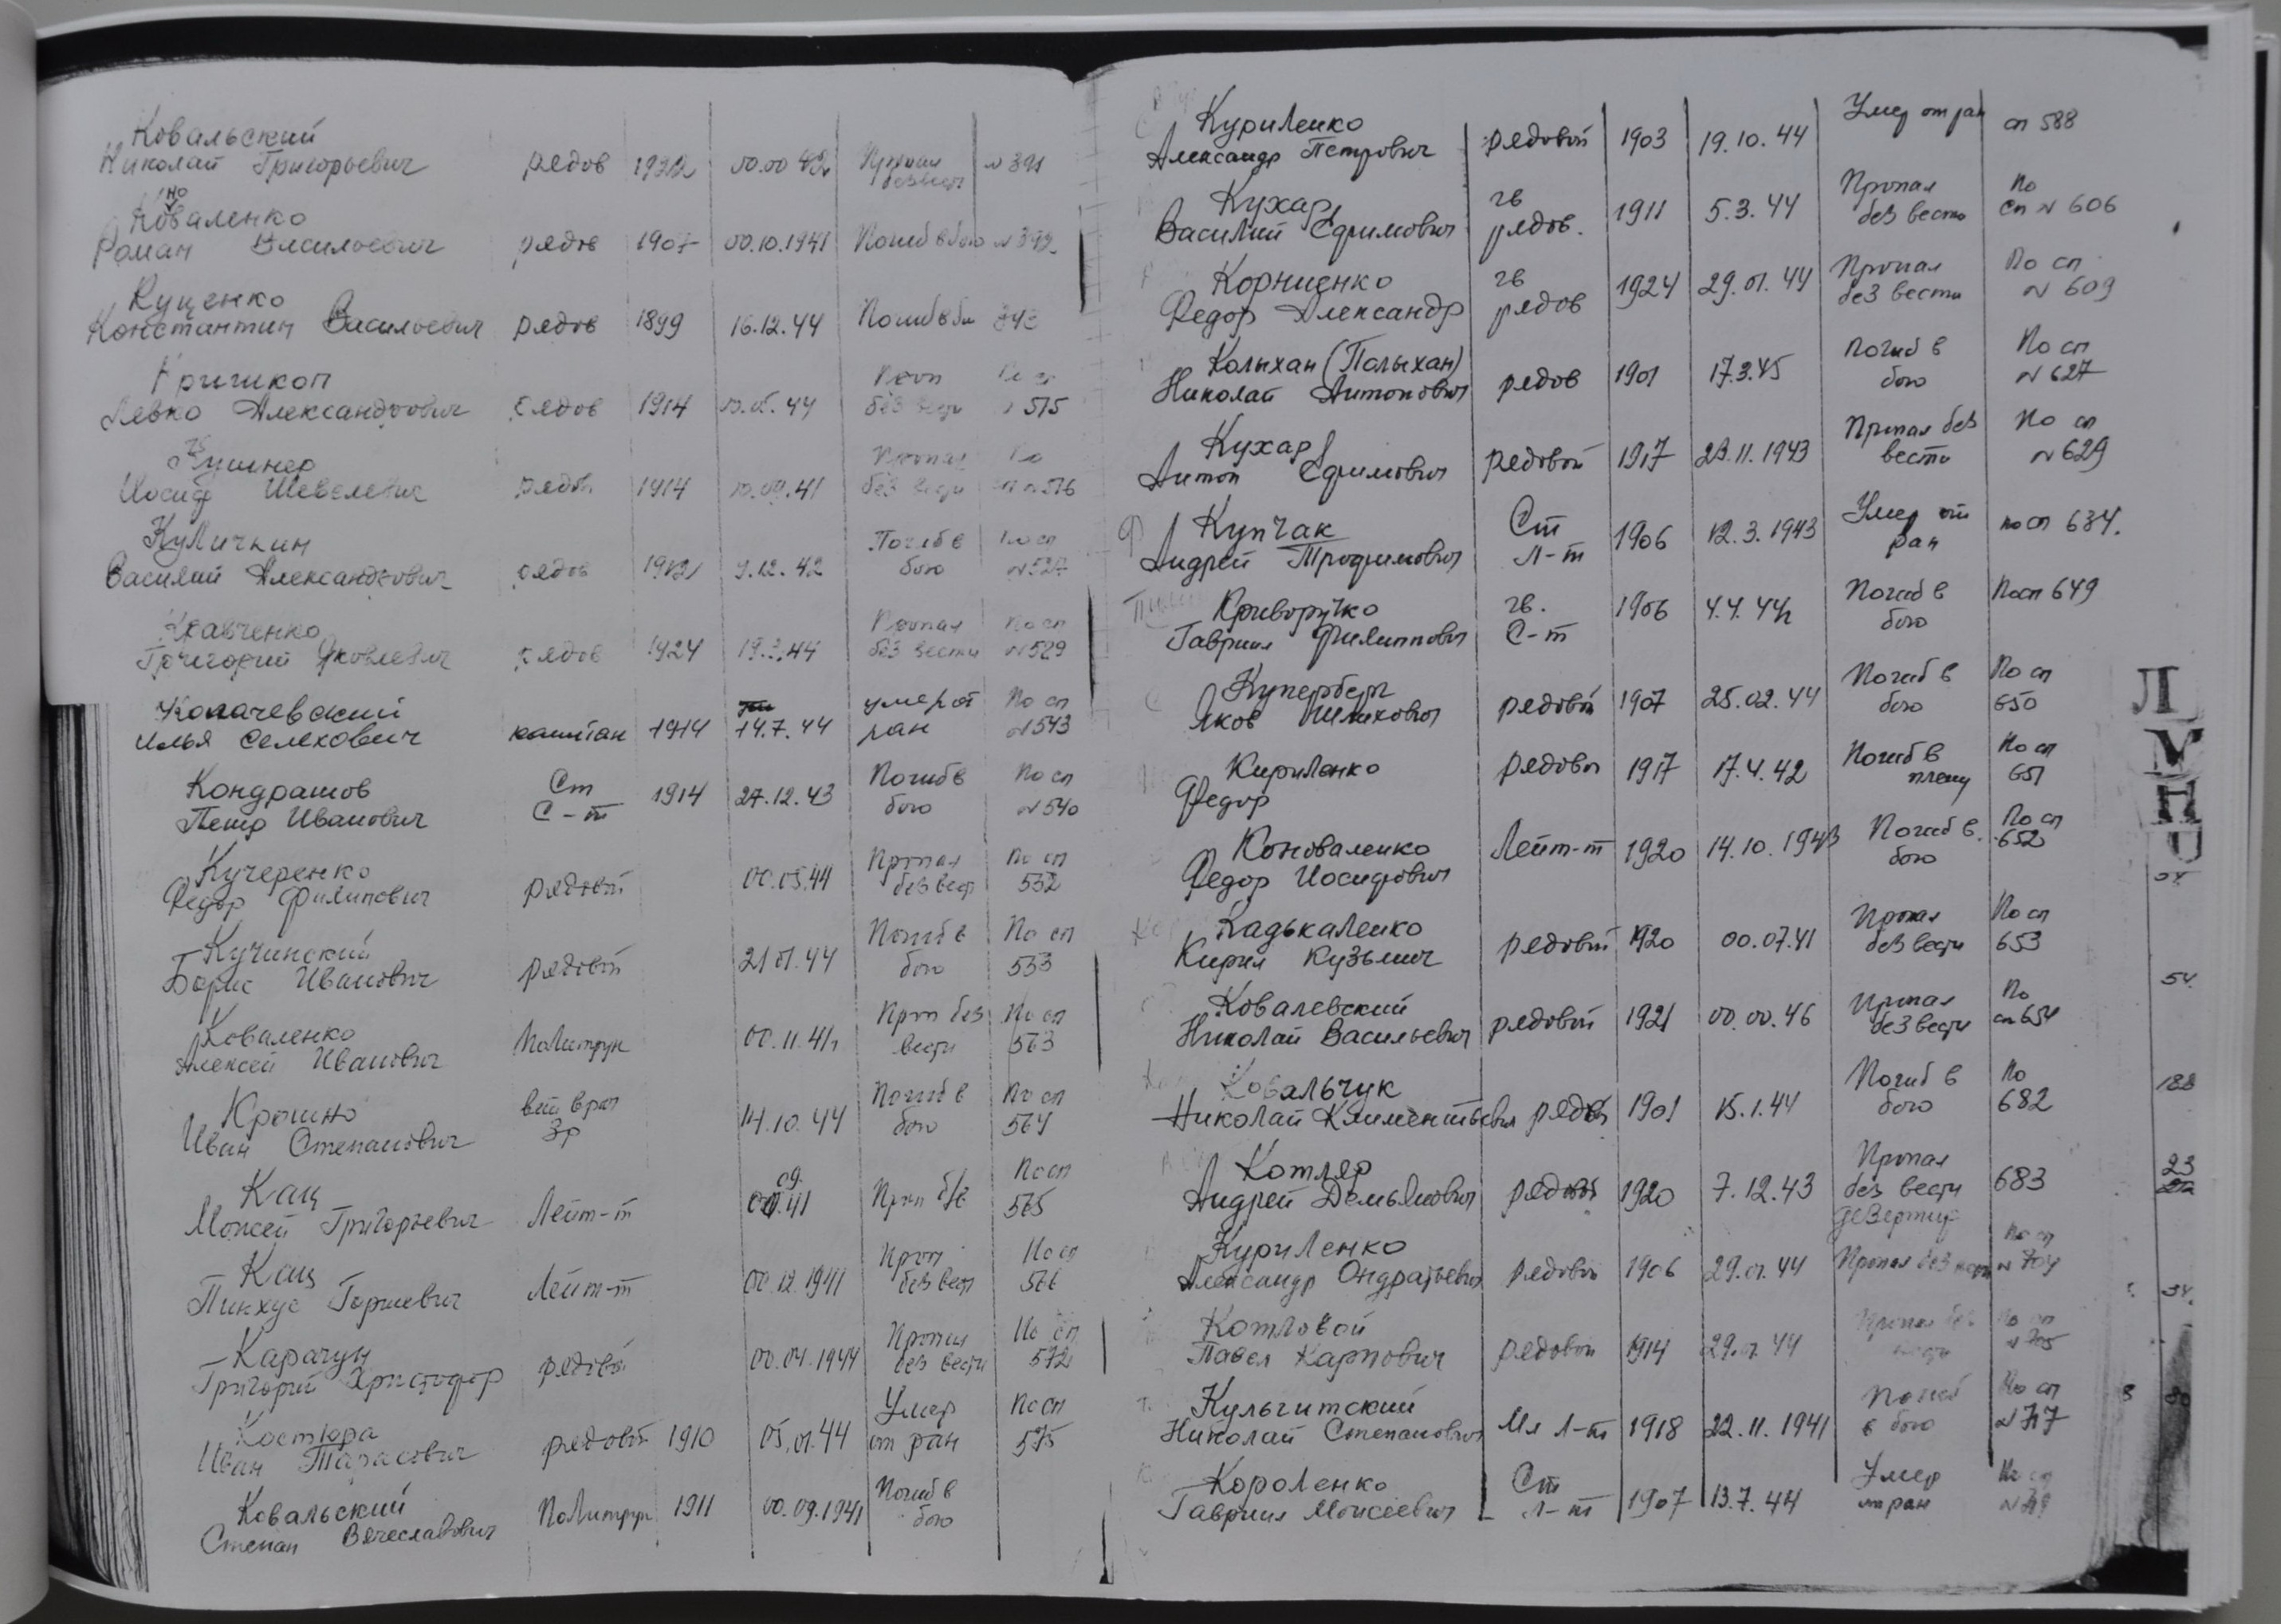 Ковальский
Николай Григорьевич рядов 1922 00.00 42 Пропал
без вест №391
но
Коваленко
Роман Васильевич рядов 1907 00.10.1941 Погиб в бою №392
Куценко
Константин Васильевич рядов 1899 16.12.44 Погиб в бо 343
Проп
Левко Александрович рядов 1914 44 без 515
Кушнер Пропал По
Иосиф Шевелевич рядов 1914 00.09.41 без вести 516
Куличкин Погиб в По сп
Василий Александрович рядов 1912 9.12.42 бою
Кравченко Пропал По сп
Григорий Яковлевич рядов 1924 19.3.44 без вести №529
Копачевский умер от По сп
Илья Селехович капитан 1914 14.7.44 ран №543
Кондрашов Ст Погиб в По сп
Петр Иванович С-т 1914 27.12.43 бою №540
Кучеренко Пропал По сп
Федор Филипович рядовой 00.05.44 без вест 532
Кучинский Погиб в По сп
Борис Иванович рядовой 21.01.44 бою 533
Коваленко Проп без По сп
Алексей Иванович Политрук 00.11.41 вести 563
Крошко вет врач Погиб в По сп
Иван Степанович 3р 14.10.44 бою 564
Кац 09 По сп
Моисей Григорьевич Лейт-т 00.41 Проп б/в 565
Кац Проп По сп
Пинхус Гаршевич Лейт-т 00.12.1941 без вест 566
Карачун Пропал По сп
Григорий Христофор рядовой 00.04.1944 без вести 572
Костюра Умер По сп
Иван Тарасович рядовой 1910 05.01.44 от ран 575
Ковальский Погиб в
Степан Вячеславович Политрук 1911 00.09.1941 бою
Куриленко Умер от ран
Александр Петрович рядовой 1903 19.10.44 сп 588
Кухар гв Пропал По
Василий Ефимович рядов. 1911 5.3.44 без вести сп №606
Корниенко гв Пропал По сп
Федор Александр рядов 1924 29.01.44 без вести №609
Колыхан (Полыхан) Погиб в По сп
Николай Антонович рядов 1901 17.3.45 бою №627
Кухар Пропал без По сп
Антон Ефимович рядовой 1917 23.11.1943 вести №629
Купчак Ст Умер от
Андрей Трофимович Л-т 1906 12.3.1943 ран по сп 634.
Криворучко гв. Погиб в По сп 649
Гавриил Филиппович С-т 1906 4.4.44 бою
Куперберг Погиб в По сп
Яков Шлихович рядовой 1907 25.02.44 бою 650
Кириленко Погиб в По сп
Федор рядовой 1917 17.4.42 плену 651
Коноваленко Погиб в По сп
Федор Иосифович Лейт-т 1920 14.10.1943 бою 652
Кадькаленко Пропал По сп
Кирил Кузьмич рядовой 1920 00.07.41 без вести 653
Ковалевский Пропал По
Николай Васильевич рядовой 1921 00.00.46 без вести сп 654
Ковальчук Погиб в По
Николай Климентьевич рядов 1901 15.1.44 бою 682
Котляр Пропал
Андрей Демьянович рядовой 1920 7.12.43 без вести 683
дезертир
Куриленко По сп
Александр Ондратьевич рядовой 1906 29.01.44 Пропал без вест №704
Котловой Пропал без По сп
Павел Карпович рядовой 1914 29.01.44 вести №705
Кульчитский Погиб По сп
Николай Степанович Мл Л-т 1918 22.11.1941 в бою №717
Короленко Ст Умер По сп
Гавриил Моисеевич Л-т 1907 13.7.44 от ран
Л
М
Н
54.
188
23
34.